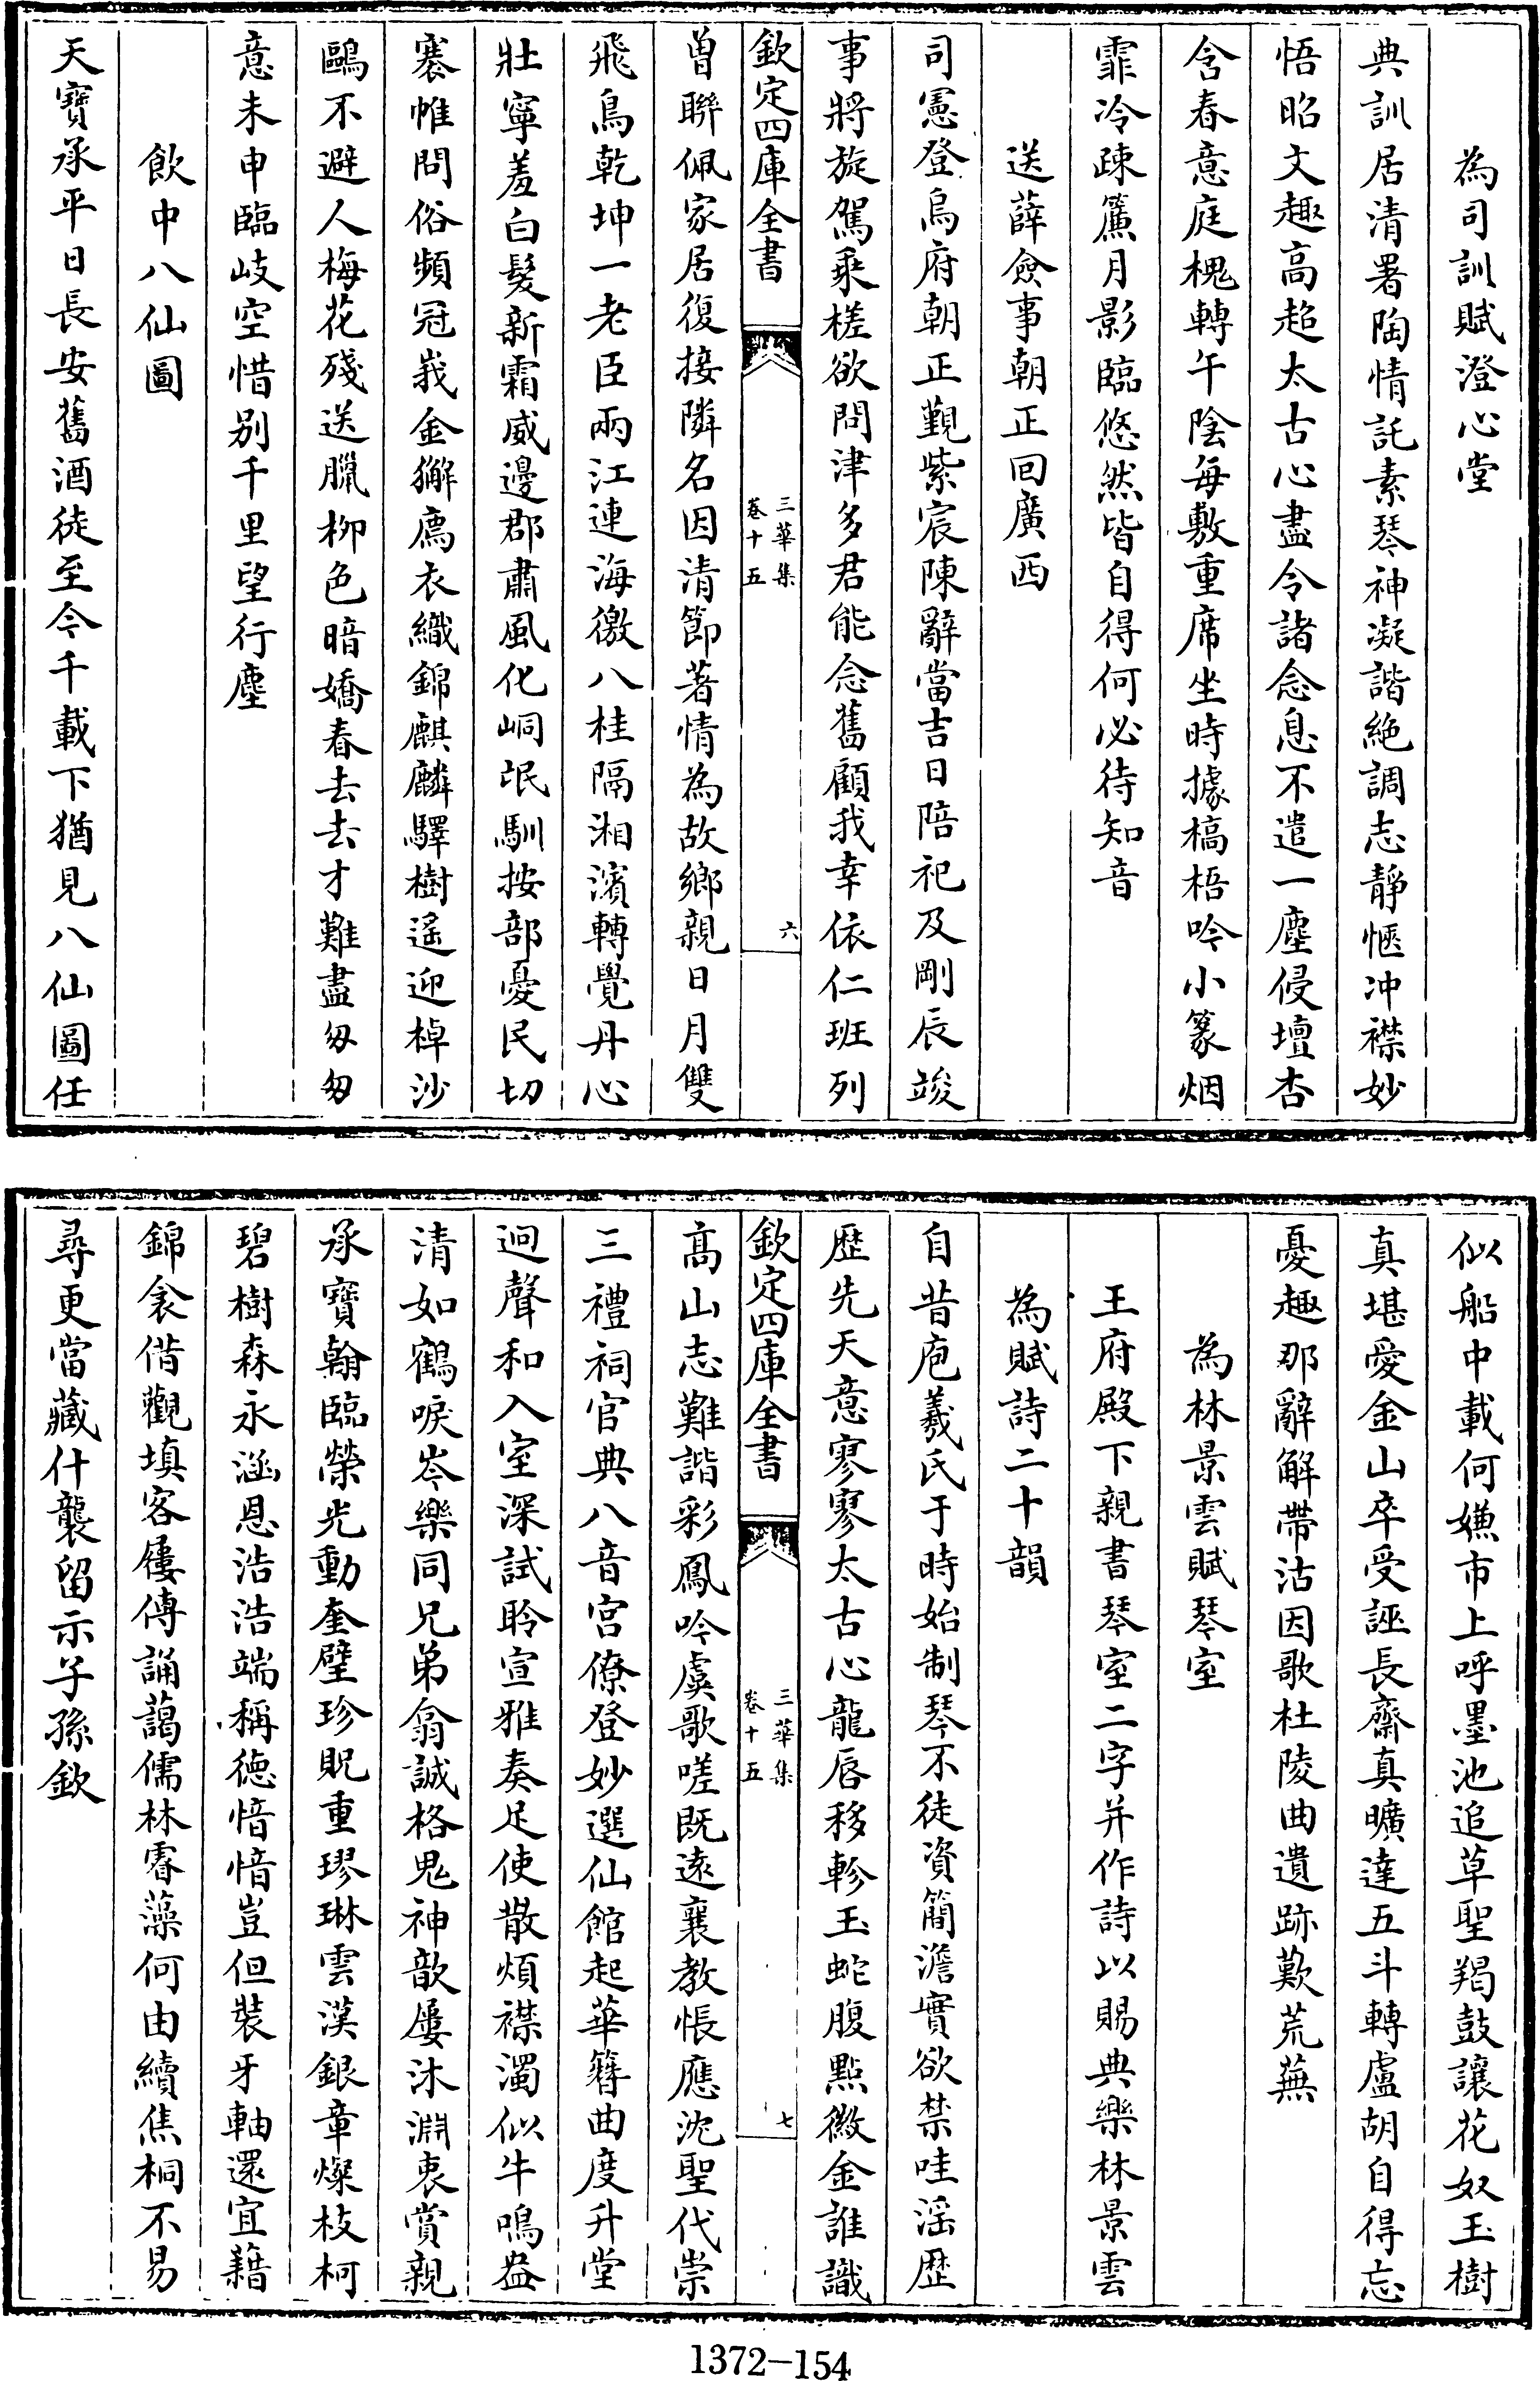 為司訓賦澄心堂
典訓居清署陶情託素琴神凝諧絶調志靜愜冲襟妙
悟昭文趣高超太古心盡令諸念息不遣一塵侵壇杏
含春意庭槐轉午陰每敷重席坐時據槁梧吟小篆烟
霏冷疎簾月影臨悠然皆自得何必待知音
送薛僉事朝正回廣西
司憲登烏府朝正覲紫宸陳辭當吉日陪祀及剛辰竣
事將旋駕乘槎欲問津多君能念舊顧我幸依仁班列
欽定四庫全書
三華集
卷十五
六
曽聯佩家居復接隣名因清節著情為故鄉親日月雙
飛鳥乾坤一老臣兩江連海徼八桂隔湘濱轉覺丹心
壯寧羞白髮新霜威邊郡肅風化峒氓馴按部憂民切
褰帷問俗頻冠峩金獬廌衣織錦麒麟驛樹遙迎棹沙
鷗不避人梅花殘送臘柳色暗嬌春去去才難盡匆匆
意未申臨岐空惜别千里望行塵
飲中八仙圖
天寶承平日長安舊酒徒至今千載下猶見八仙圖任
似船中載何嫌市上呼墨池追草聖羯鼓讓花奴玉樹
真堪愛金山卒受誣長齋真曠達五斗轉盧胡自得忘
憂趣那辭解帶沽因歌杜陵曲遺跡歎荒蕪
為林景雲賦琴室
王府殿下親書琴室二字并作詩以賜典樂林景雲
為賦詩二十韻
自昔庖羲氏于時始制琴不徒資簡澹實欲禁哇滛歴
歴先天意寥寥太古心龍唇移軫玉蛇腹點徽金誰識
欽定四庫全書
三華集
卷十五
七
髙山志難諧彩鳳吟虞歌嗟既逺襄教悵應沈聖代崇
三禮祠官典八音宫僚登妙選仙館起華簪曲度升堂
迥聲和入室深試聆宣雅奏足使散煩襟濁似牛鳴盎
清如鶴唳岑樂同兄弟翕誠格鬼神歆屢沐淵衷賞親
承寶翰臨榮光動奎壁珍貺重璆琳雲漢銀章燦枝柯
碧樹森永涵恩浩浩端稱徳愔愔豈但裝牙軸還宜籍
錦衾偕觀填客屨傳誦藹儒林睿藻何由續焦桐不易
尋更當藏什襲留示子孫欽
1372-154